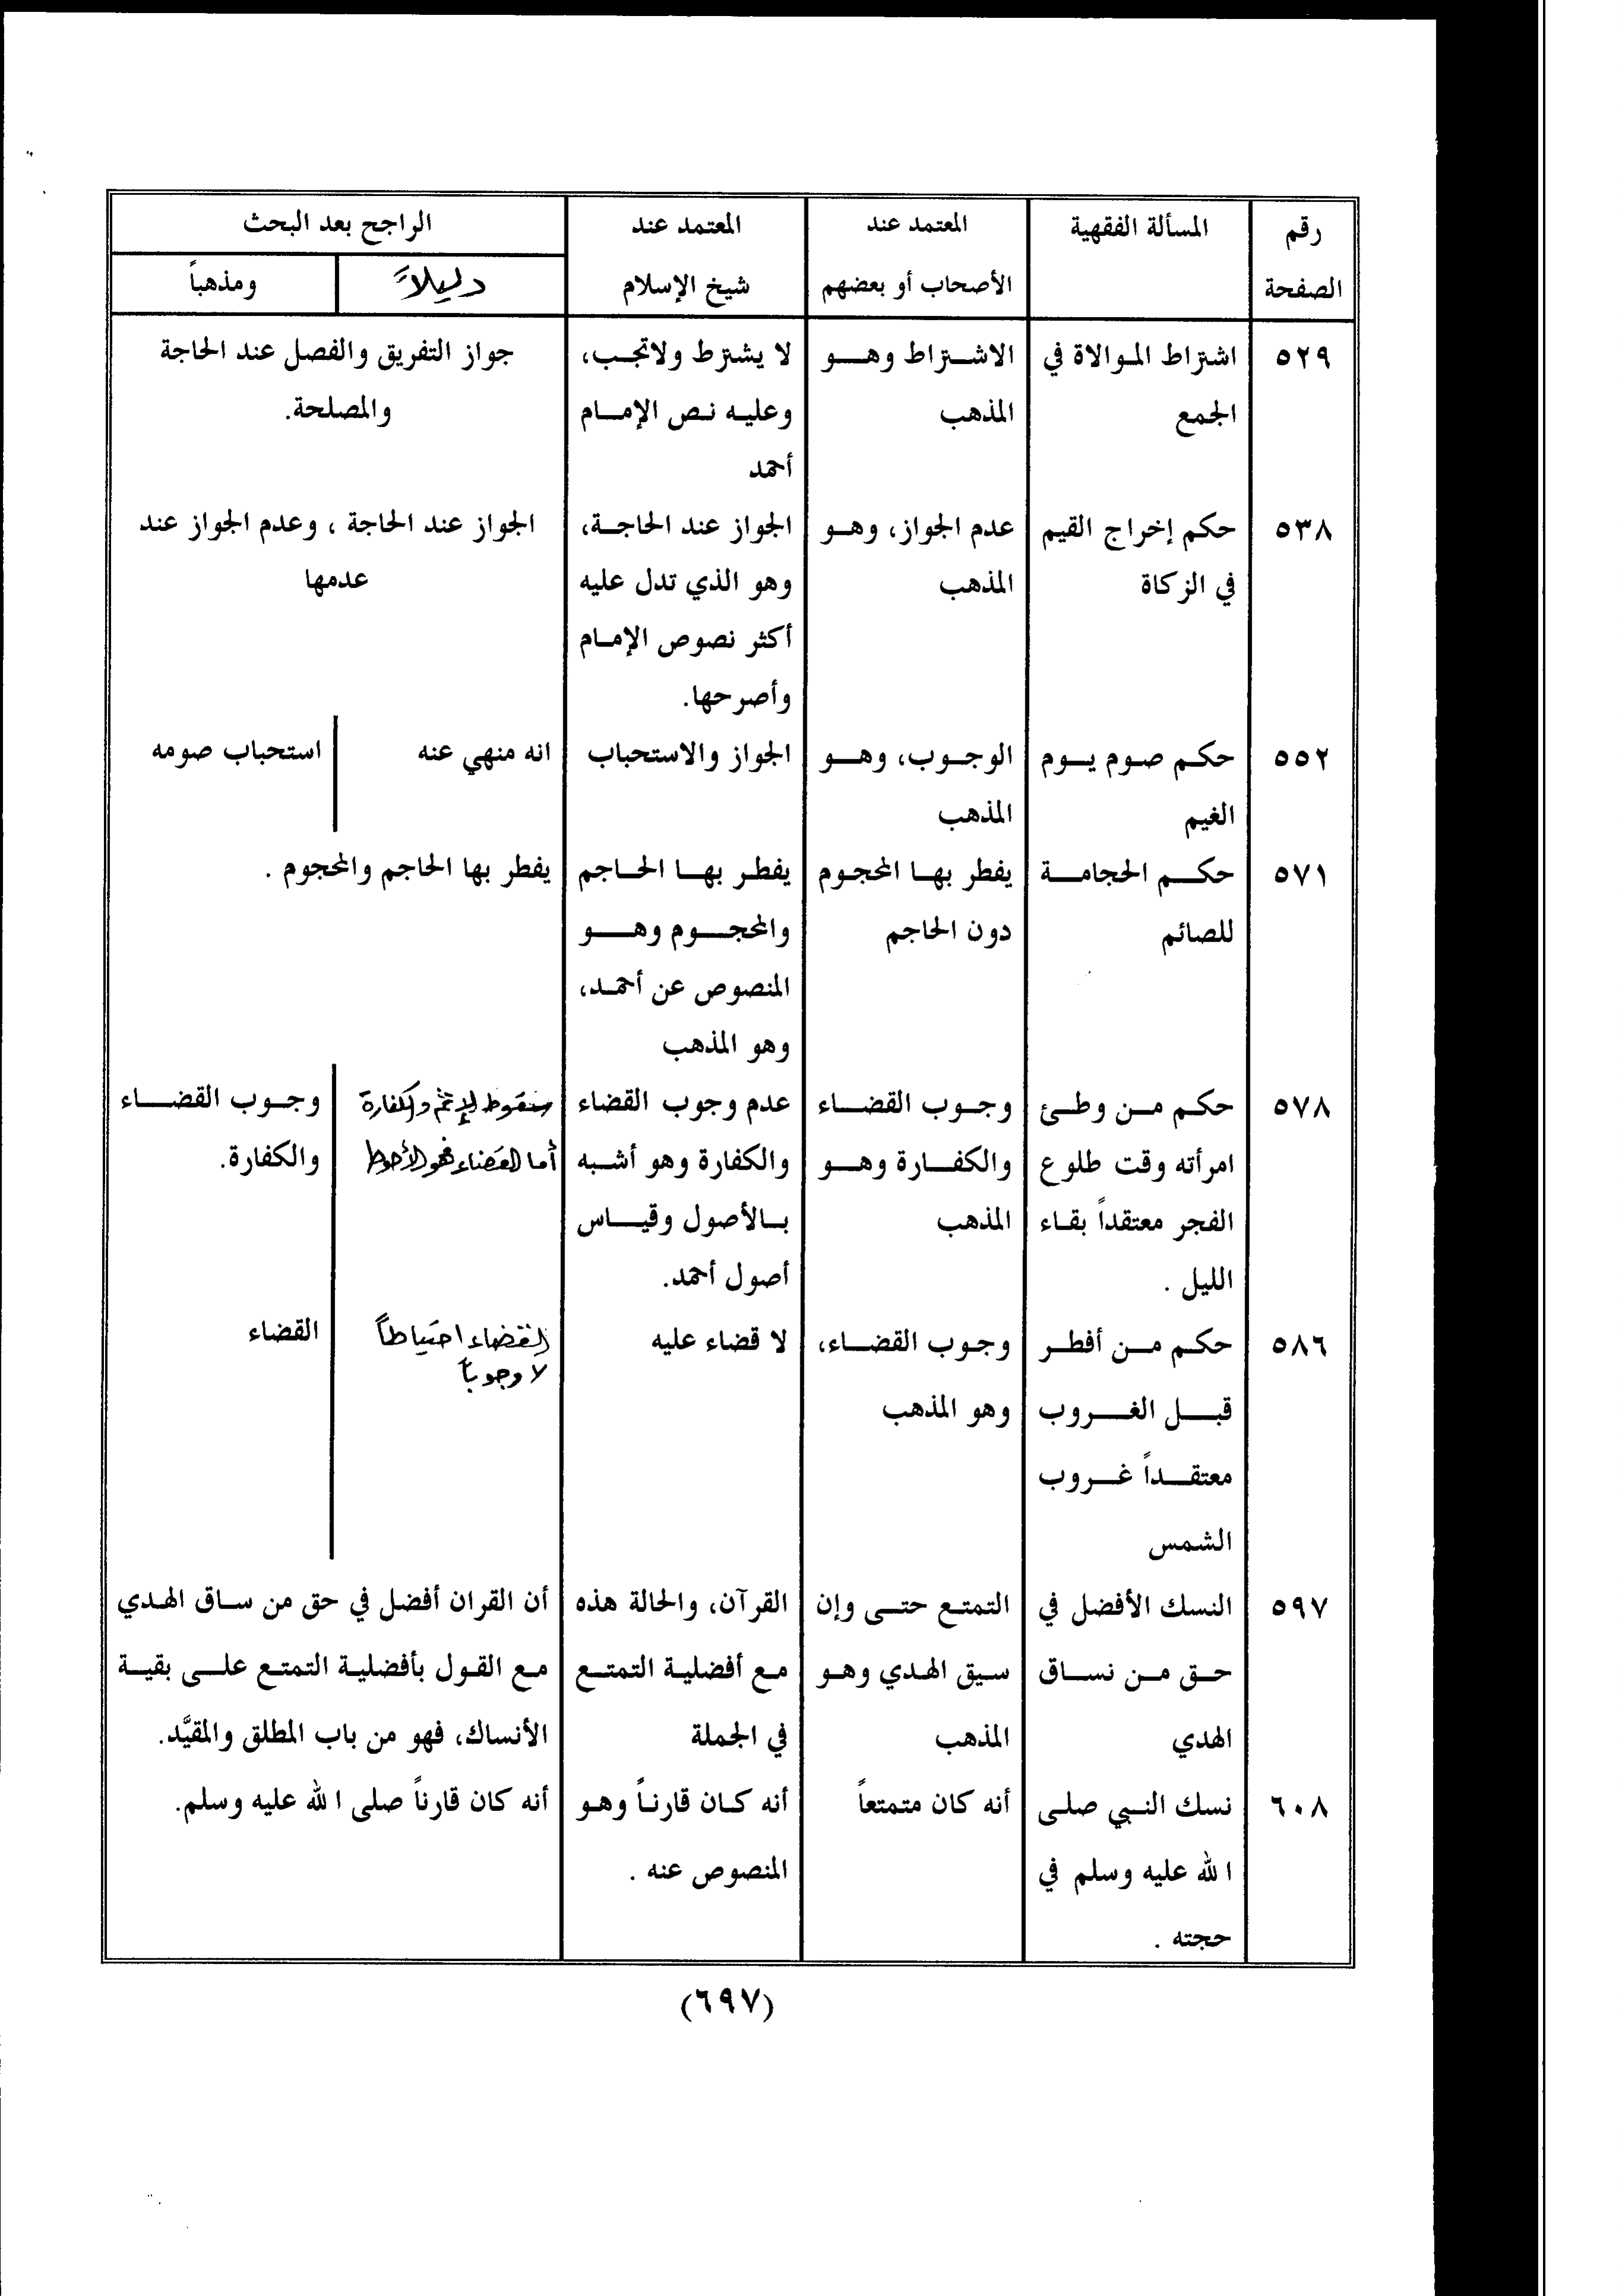 رقم
الصفحة
المسألة الفقهية
المعتمد عند
الأصحاب أو بعضهم
المعتمد عند
شيخ الإسلام
الراجح بعد البحث
دليلاً
ومذهباً
٥٢٩
اشتراط الموالاة في
الجمع
الاشتراط وهو
المذهب
لا يشترط ولاتجب،
وعليه نص الإمام
أحمد
جواز التفريق والفصل عند الحاجة
والمصلحة.
٥٣٨
حكم إخراج القيم
في الزكاة
عدم الجواز، وهو
المذهب
الجواز عند الحاجة،
وهو الذي تدل عليه
أكثر نصوص الإمام
وأصرحها.
الجواز عند الحاجة ، وعدم الجواز عند
عدمها
٥٥٢
حكم صوم يوم
الغيم
الوجوب، وهو
المذهب
الجواز والاستحباب
انه منهي عنه
استحباب صومه
٥٧١
حكم الحجامة
للصائم
يفطر بها المحجوم
دون الحاجم
يفطر بها الحاجم
والمحجوم وهو
المنصوص عن أحمد،
وهو المذهب
يفطر بها الحاجم والمحجوم .
٥٧٨
حكم من وطئ
امرأته وقت طلوع
الفجر معتقداً بقاء
الليل .
وجوب القضاء
والكفارة وهو
المذهب
عدم وجوب القضاء
والكفارة وهو أشبه
بالأصول وقياس
أصول أحمد.
سقوط الإثم والكفارة
أما القضاء فهو الأحوط
وجوب القضاء
والكفارة.
٥٨٦
حكم من أفطر
قبل الغروب
معتقداً غروب
الشمس
وجوب القضاء،
وهو المذهب
لا قضاء عليه
القضاء احتياطاً
لا وجوباً
القضاء
٥٩٧
النسك الأفضل في
حق من نساق
الهدي
التمتع حتى وإن
سيق الهدي وهو
المذهب
القرآن، والحالة هذه
مع أفضلية التمتع
في الجملة
أن القران أفضل في حق من ساق الهدي
مع القول بأفضلية التمتع على بقية
الأنساك، فهو من باب المطلق والمقيَّد.
٦٠٨
نسك النبي صلى
الله عليه وسلم في
حجته .
أنه كان متمتعاً
أنه كان قارناً وهو
المنصوص عنه .
أنه كان قارناً صلى الله عليه وسلم.
(٦٩٧)